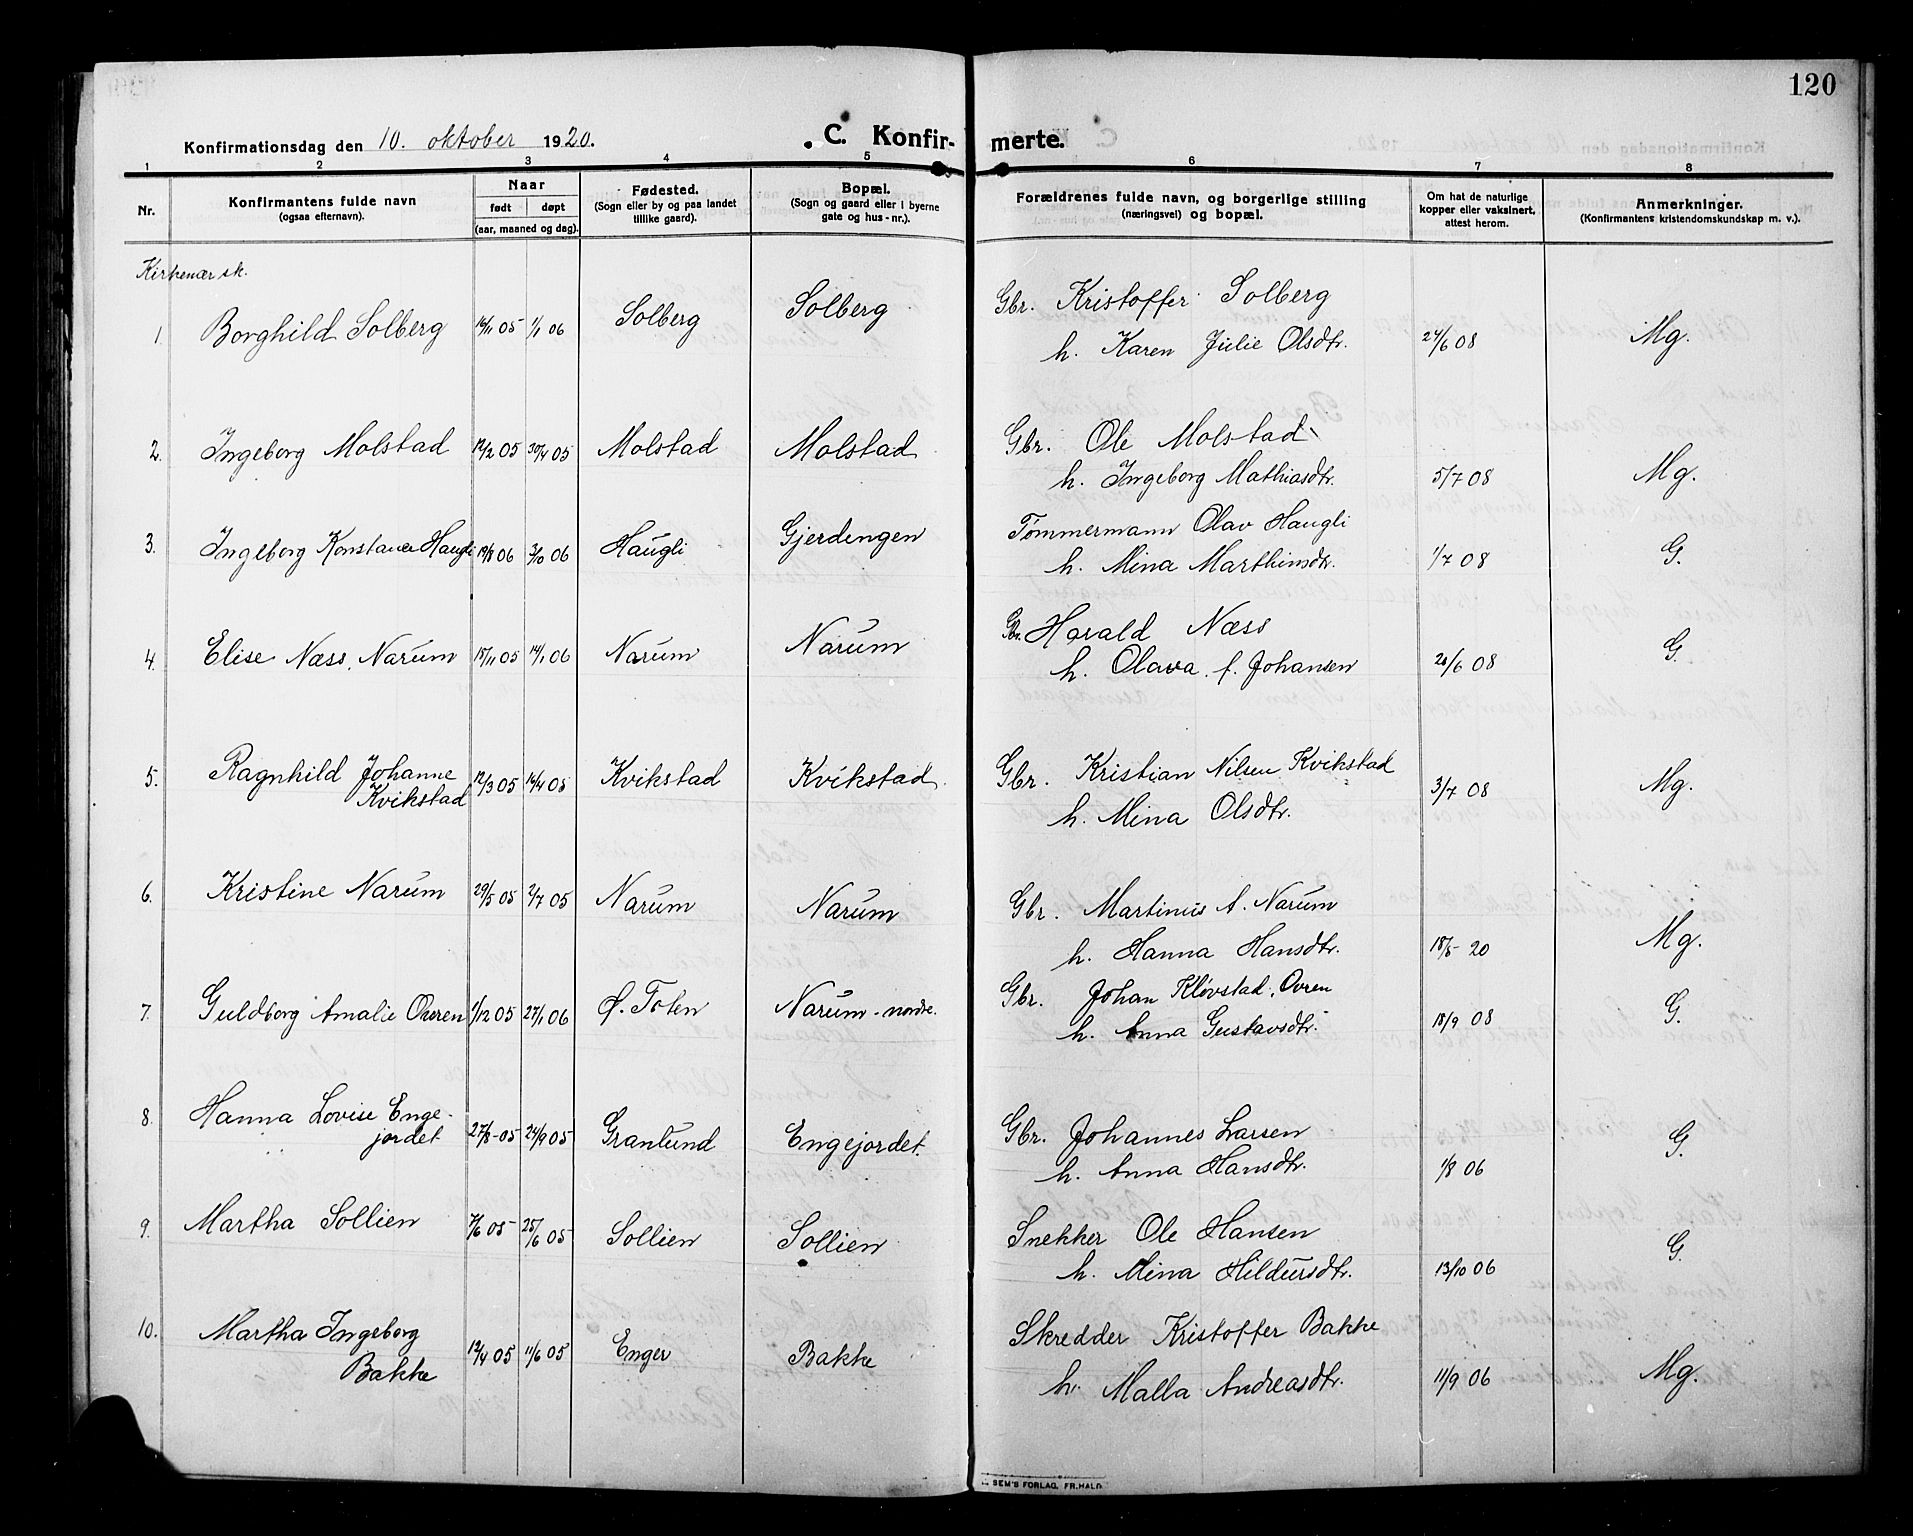 120
Konfirmationsdag den 10. oktober 1920.
C. Konfir-
merte.
1 2 3 4 5 6 7 8
Nr.
Konfirmantens fulde navn
(ogsaa efternavn).
Naar
født døpt
(aar, maaned og dag).
Fødested.
(Sogn eller by og paa landet
tillike gaard).
Bopæl.
(Sogn og gaard eller i byerne
gate og hus-nr.).
Forældrenes fulde navn, og borgerlige stilling
(næringsvei) og bopæl.
Om hat de naturlige
kopper eller vaksinert,
attest herom.
Anmerkninger.
(Konfirmantens kristendomskundskap m. v.).
Kirkenær sk.
1. Borghild Solberg 14/11 05 1/1 06 Solberg Solberg Gbr. Kristoffer Solberg
h. Karen Julie Olsdtr. 24/6 08 Mg.
2. Ingeborg Molstad 12/2 05 30/4 05 Molstad Molstad Gbr. Ole Molstad
h. Ingeborg Mathiasdtr. 5/7 08 Mg.
3. Ingeborg Konstance Haugli 19/8 06 3/10 06 Haugli Gjerdingen Tømmermann Olav Haugli
h. Mina Marthinsdtr. 1/7 08 G.
4. Elise Næss, Narum 18/11 05 14/1 06 Narum Narum Gbr. Harald Næss
h. Olava f. Johansen 20/6 08 G.
5. Ragnhild Johanne
Kvikstad 12/3 05 16/4 05 Kvikstad Kvikstad Gbr. Kristian Nilsen Kvikstad
h. Mina Olsdtr. 3/7 08 Mg.
6. Kristine Narum 29/5 05 2/7 05 Narum Narum Gbr. Martinus A. Narum
h. Hanna Hansdtr. 18/5 20 Mg.
7. Guldborg Amalie Ovren 1/12 05 27/1 06 Ø. Toten Narum-nordre. Gbr. Johan Kløvstad, Ovren
h. Anna Gustavsdtr. 18/9 08 G.
8. Hanna Lovise Enge-
jordet 27/8-05 24/9 05 Granlund Engejordet. Gbr. Johannes Larsen
h. Anna Hansdtr. 1/8 06 G.
9. Martha Sollien 7/6 05 25/6 05 Sollien Sollien Snekker Ole Hansen
h. Mina Hildursdtr. 13/10 06 G.
10. Martha Ingeborg
Bakke 12/4 05 11/6 05 Enger Bakke Skredder Kristoffer Bakke
h. Malla Andreasdtr. 11/9 06 Mg.
SEM'S FORLAG, FR.HALD